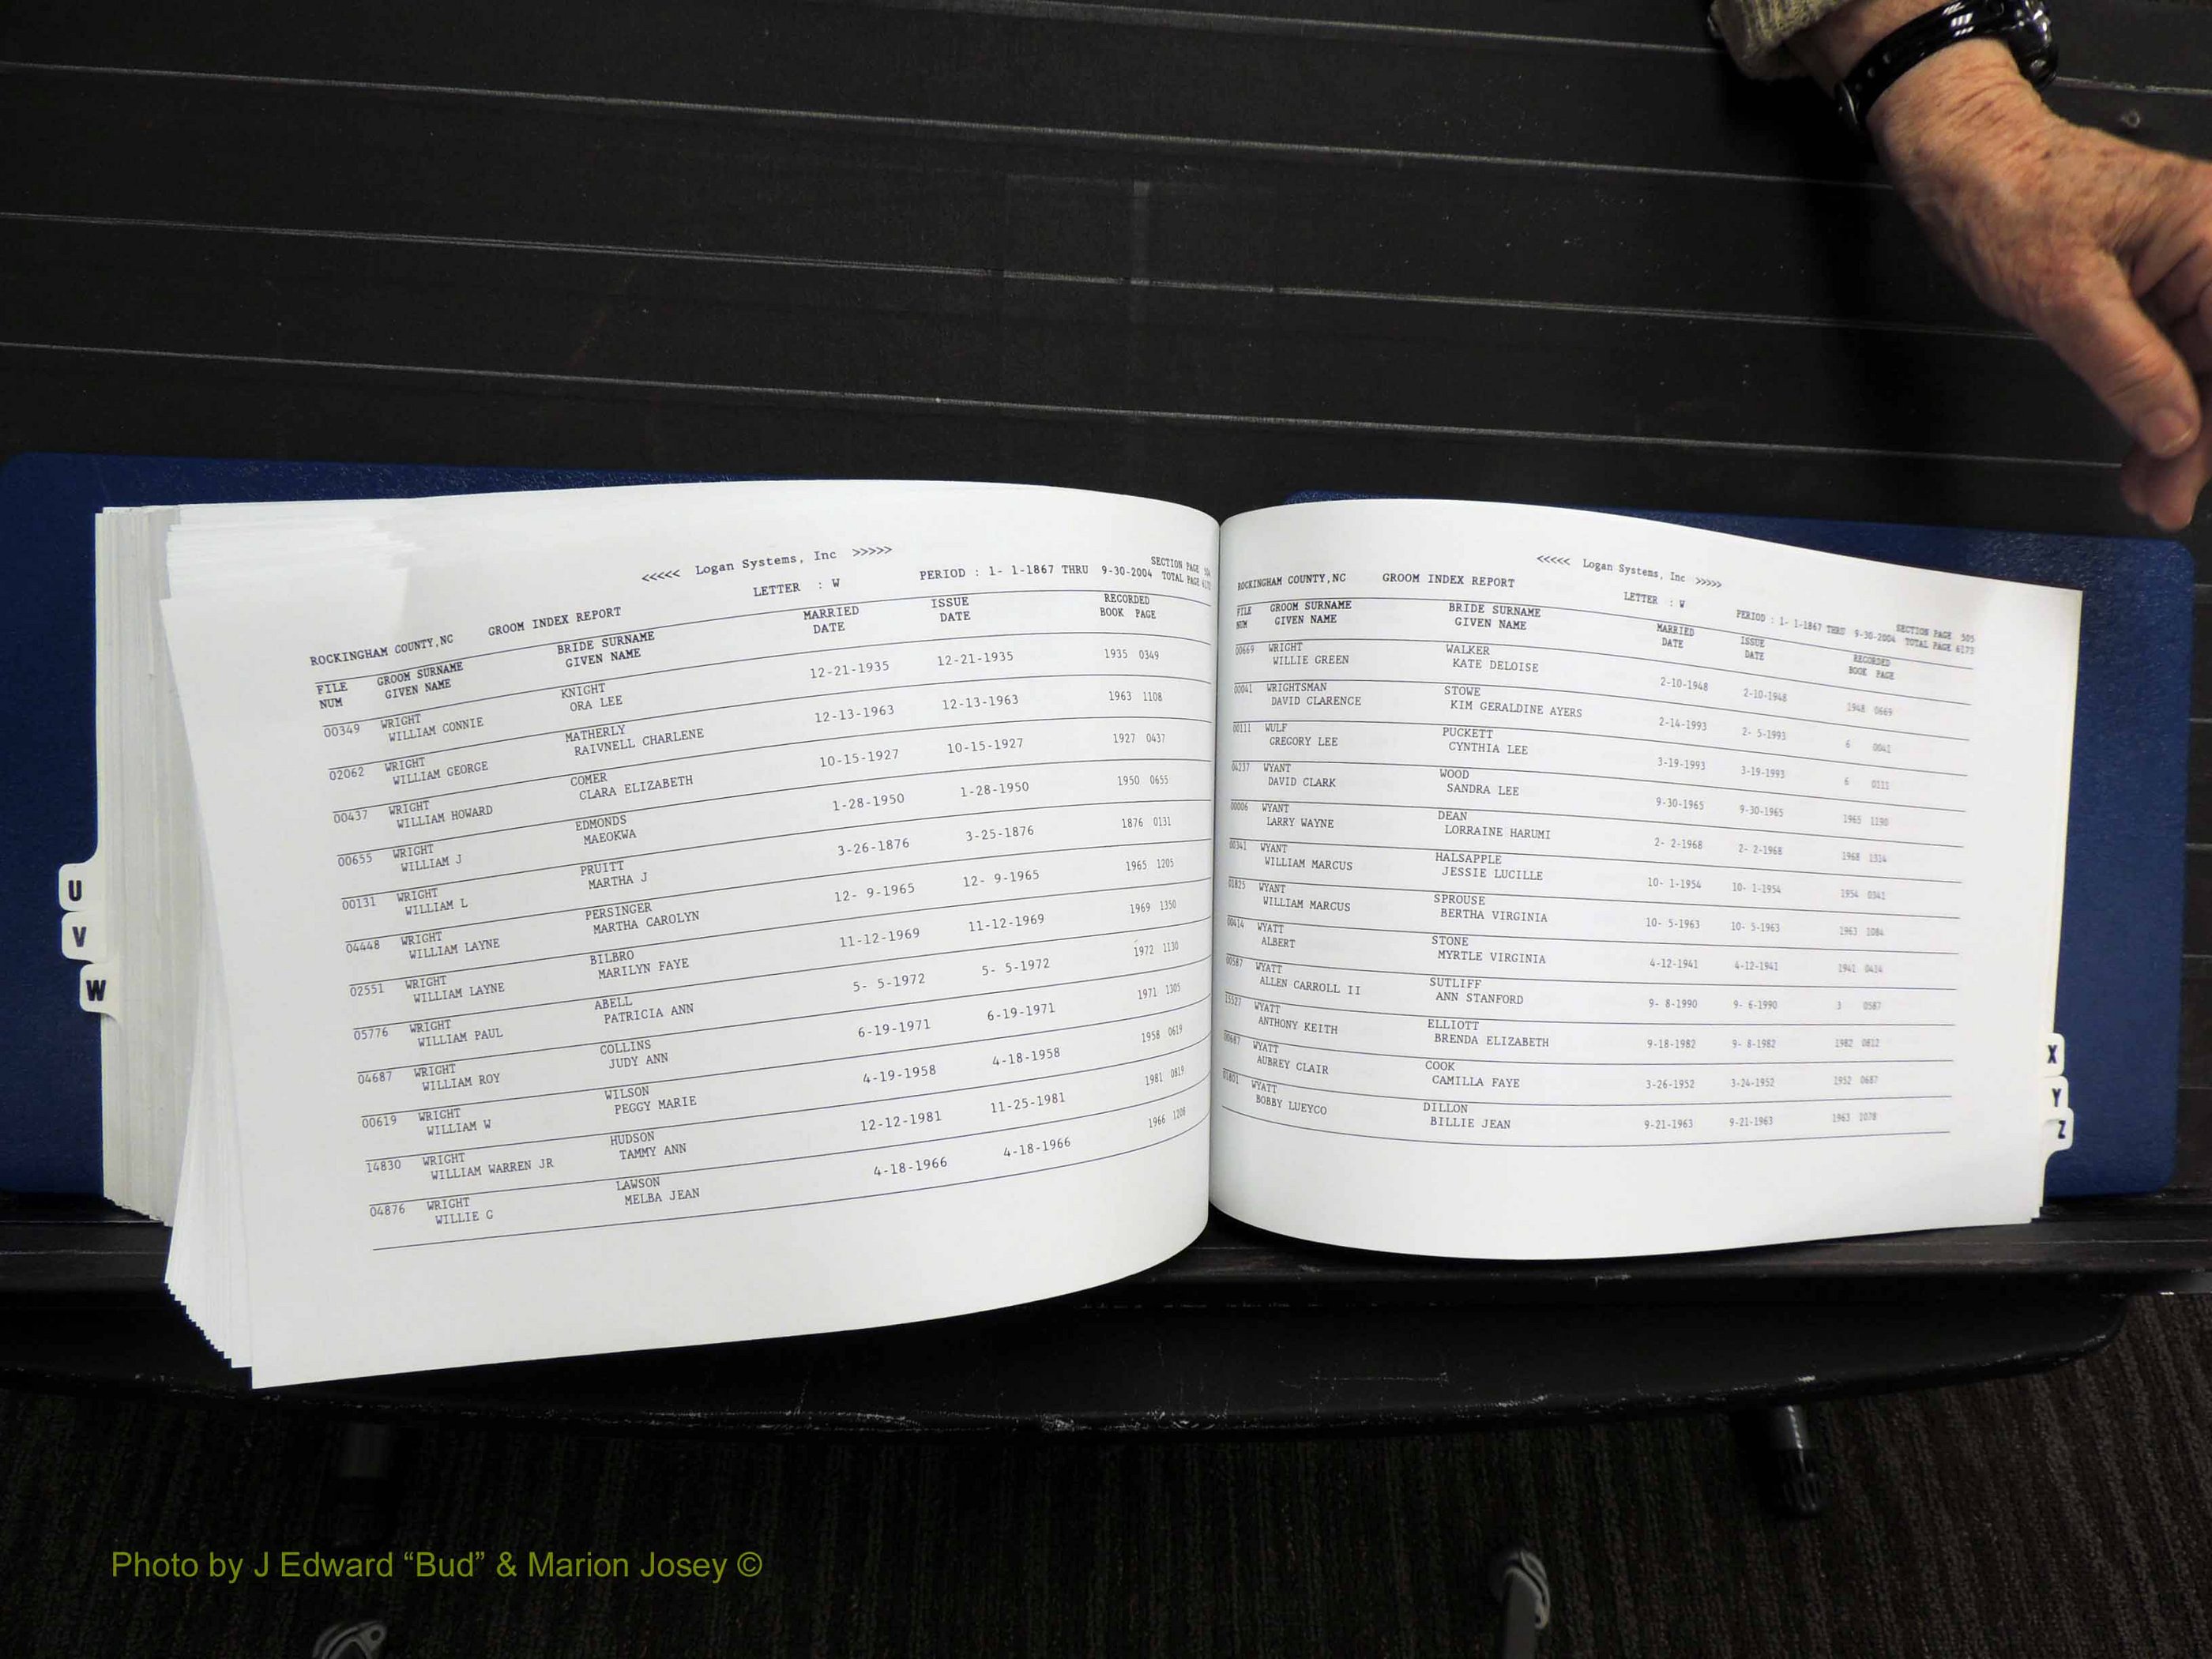 <<<<< Logan Systems, Inc >>>>>
ROCKINGHAM COUNTY,NC GROOM INDEX REPORT LETTER : W PERIOD : 1- 1-1867 THRU 9-30-2004 SECTION PAGE
TOTAL PAGE
FILE GROOM SURNAME BRIDE SURNAME MARRIED ISSUE RECORDED
NUM GIVEN NAME GIVEN NAME DATE DATE BOOK PAGE
00349 WRIGHT KNIGHT 12-21-1935 12-21-1935 1935 0349
WILLIAM CONNIE ORA LEE
02062 WRIGHT MATHERLY 12-13-1963 12-13-1963 1963 1108
WILLIAM GEORGE RAIVNELL CHARLENE
00437 WRIGHT COMER 10-15-1927 10-15-1927 1927 0437
WILLIAM HOWARD CLARA ELIZABETH
00655 WRIGHT EDMONDS 1-28-1950 1-28-1950 1950 0655
WILLIAM J MAEOKWA
00131 WRIGHT PRUITT 3-26-1876 3-25-1876 1876 0131
WILLIAM L MARTHA J
04448 WRIGHT PERSINGER 12- 9-1965 12- 9-1965 1965 1205
WILLIAM LAYNE MARTHA CAROLYN
02551 WRIGHT BILBRO 11-12-1969 11-12-1969 1969 1350
WILLIAM LAYNE MARILYN FAYE
05776 WRIGHT ABELL 5- 5-1972 5- 5-1972 1972 1130
WILLIAM PAUL PATRICIA ANN
04687 WRIGHT COLLINS 6-19-1971 6-19-1971 1971 1305
WILLIAM ROY JUDY ANN
00619 WRIGHT WILSON 4-19-1958 4-18-1958 1958 0619
WILLIAM W PEGGY MARIE
14830 WRIGHT HUDSON 12-12-1981 11-25-1981 1981 0819
WILLIAM WARREN JR TAMMY ANN
04876 WRIGHT LAWSON 4-18-1966 4-18-1966 1966 1208
WILLIE G MELBA JEAN
<<<<< Logan Systems, Inc >>>>>
ROCKINGHAM COUNTY,NC GROOM INDEX REPORT LETTER : W PERIOD : 1- 1-1867 THRU 9-30-2004 SECTION PAGE 505
TOTAL PAGE 6173
FILE GROOM SURNAME BRIDE SURNAME MARRIED ISSUE RECORDED
NUM GIVEN NAME GIVEN NAME DATE DATE BOOK PAGE
00669 WRIGHT WALKER 2-10-1948 2-10-1948 1948 0669
WILLIE GREEN KATE DELOISE
00041 WRIGHTSMAN STOWE 2-14-1993 2- 5-1993 6 0041
DAVID CLARENCE KIM GERALDINE AYERS
00111 WULF PUCKETT 3-19-1993 3-19-1993 6 0111
GREGORY LEE CYNTHIA LEE
04237 WYANT WOOD 9-30-1965 9-30-1965 1965 1190
DAVID CLARK SANDRA LEE
00006 WYANT DEAN 2- 2-1968 2- 2-1968 1968 1334
LARRY WAYNE LORRAINE HARUMI
00341 WYANT HALSAPPLE 10- 1-1954 10- 1-1954 1954 0341
WILLIAM MARCUS JESSIE LUCILLE
01825 WYANT SPROUSE 10- 5-1963 10- 5-1963 1963 1084
WILLIAM MARCUS BERTHA VIRGINIA
00414 WYATT STONE 4-12-1941 4-12-1941 1941 0414
ALBERT MYRTLE VIRGINIA
00587 WYATT SUTLIFF 9- 8-1990 9- 6-1990 3 0587
ALLEN CARROLL II ANN STANFORD
15527 WYATT ELLIOTT 9-18-1982 9- 8-1982 1982 0812
ANTHONY KEITH BRENDA ELIZABETH
00687 WYATT COOK 3-26-1952 3-24-1952 1952 0687
AUBREY CLAIR CAMILLA FAYE
01801 WYATT DILLON 9-21-1963 9-21-1963 1963 1078
BOBBY LUEYCO BILLIE JEAN
U
V
W
X
Y
Z
Photo by J Edward “Bud” & Marion Josey ©